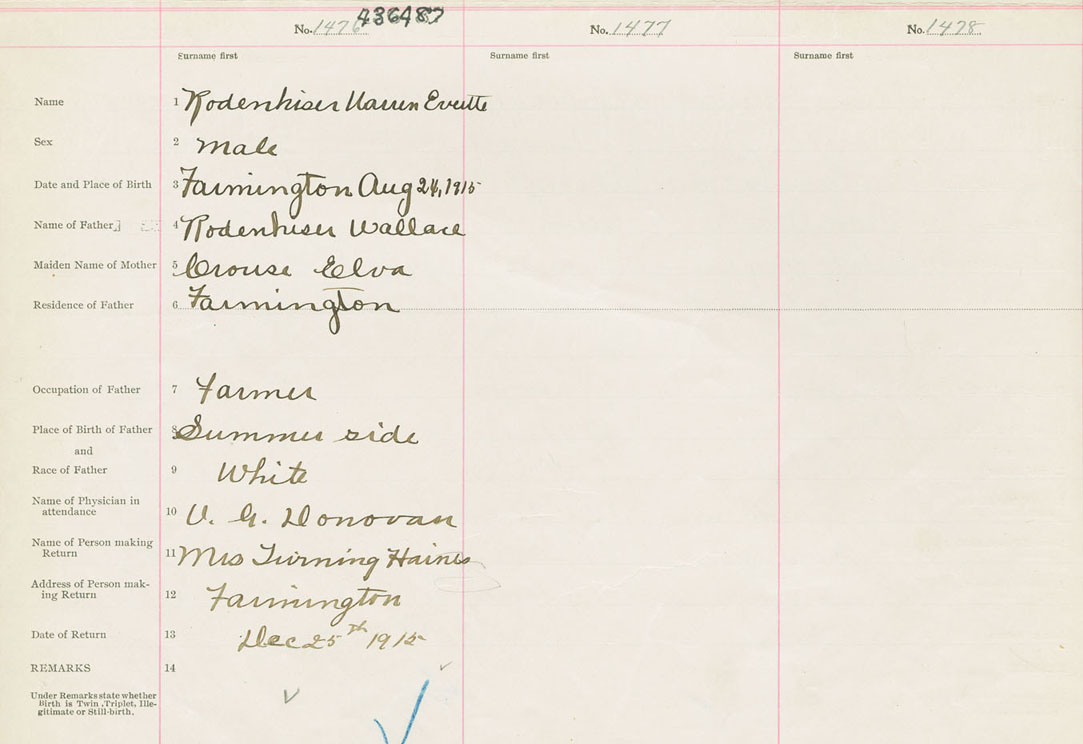 436487
No. 1476 No. 1477 No. 1478
Surname first Surname first Surname first
Name 1 Rodenhiser Warren Everette
Sex 2 Male
Date and Place of Birth 3 Farmington Aug 24, 1915
Name of Father 4 Rodenhiser Wallace
Maiden Name of Mother 5 Crouse Elva
Residence of Father 6 Farmington
Occupation of Father 7 Farmer
Place of Birth of Father 8 Summer side
and
Race of Father 9 White
Name of Physician in
attendance 10 V. G. Donovan
Name of Person making
Return 11 Mrs Haines
Address of Person mak-
ing Return 12 Farmington
Date of Return 13 Dec 25th 1915
REMARKS 14
Under Remarks state whether
Birth is Twin, Triplet, Ille-
gitimate or Still-birth.